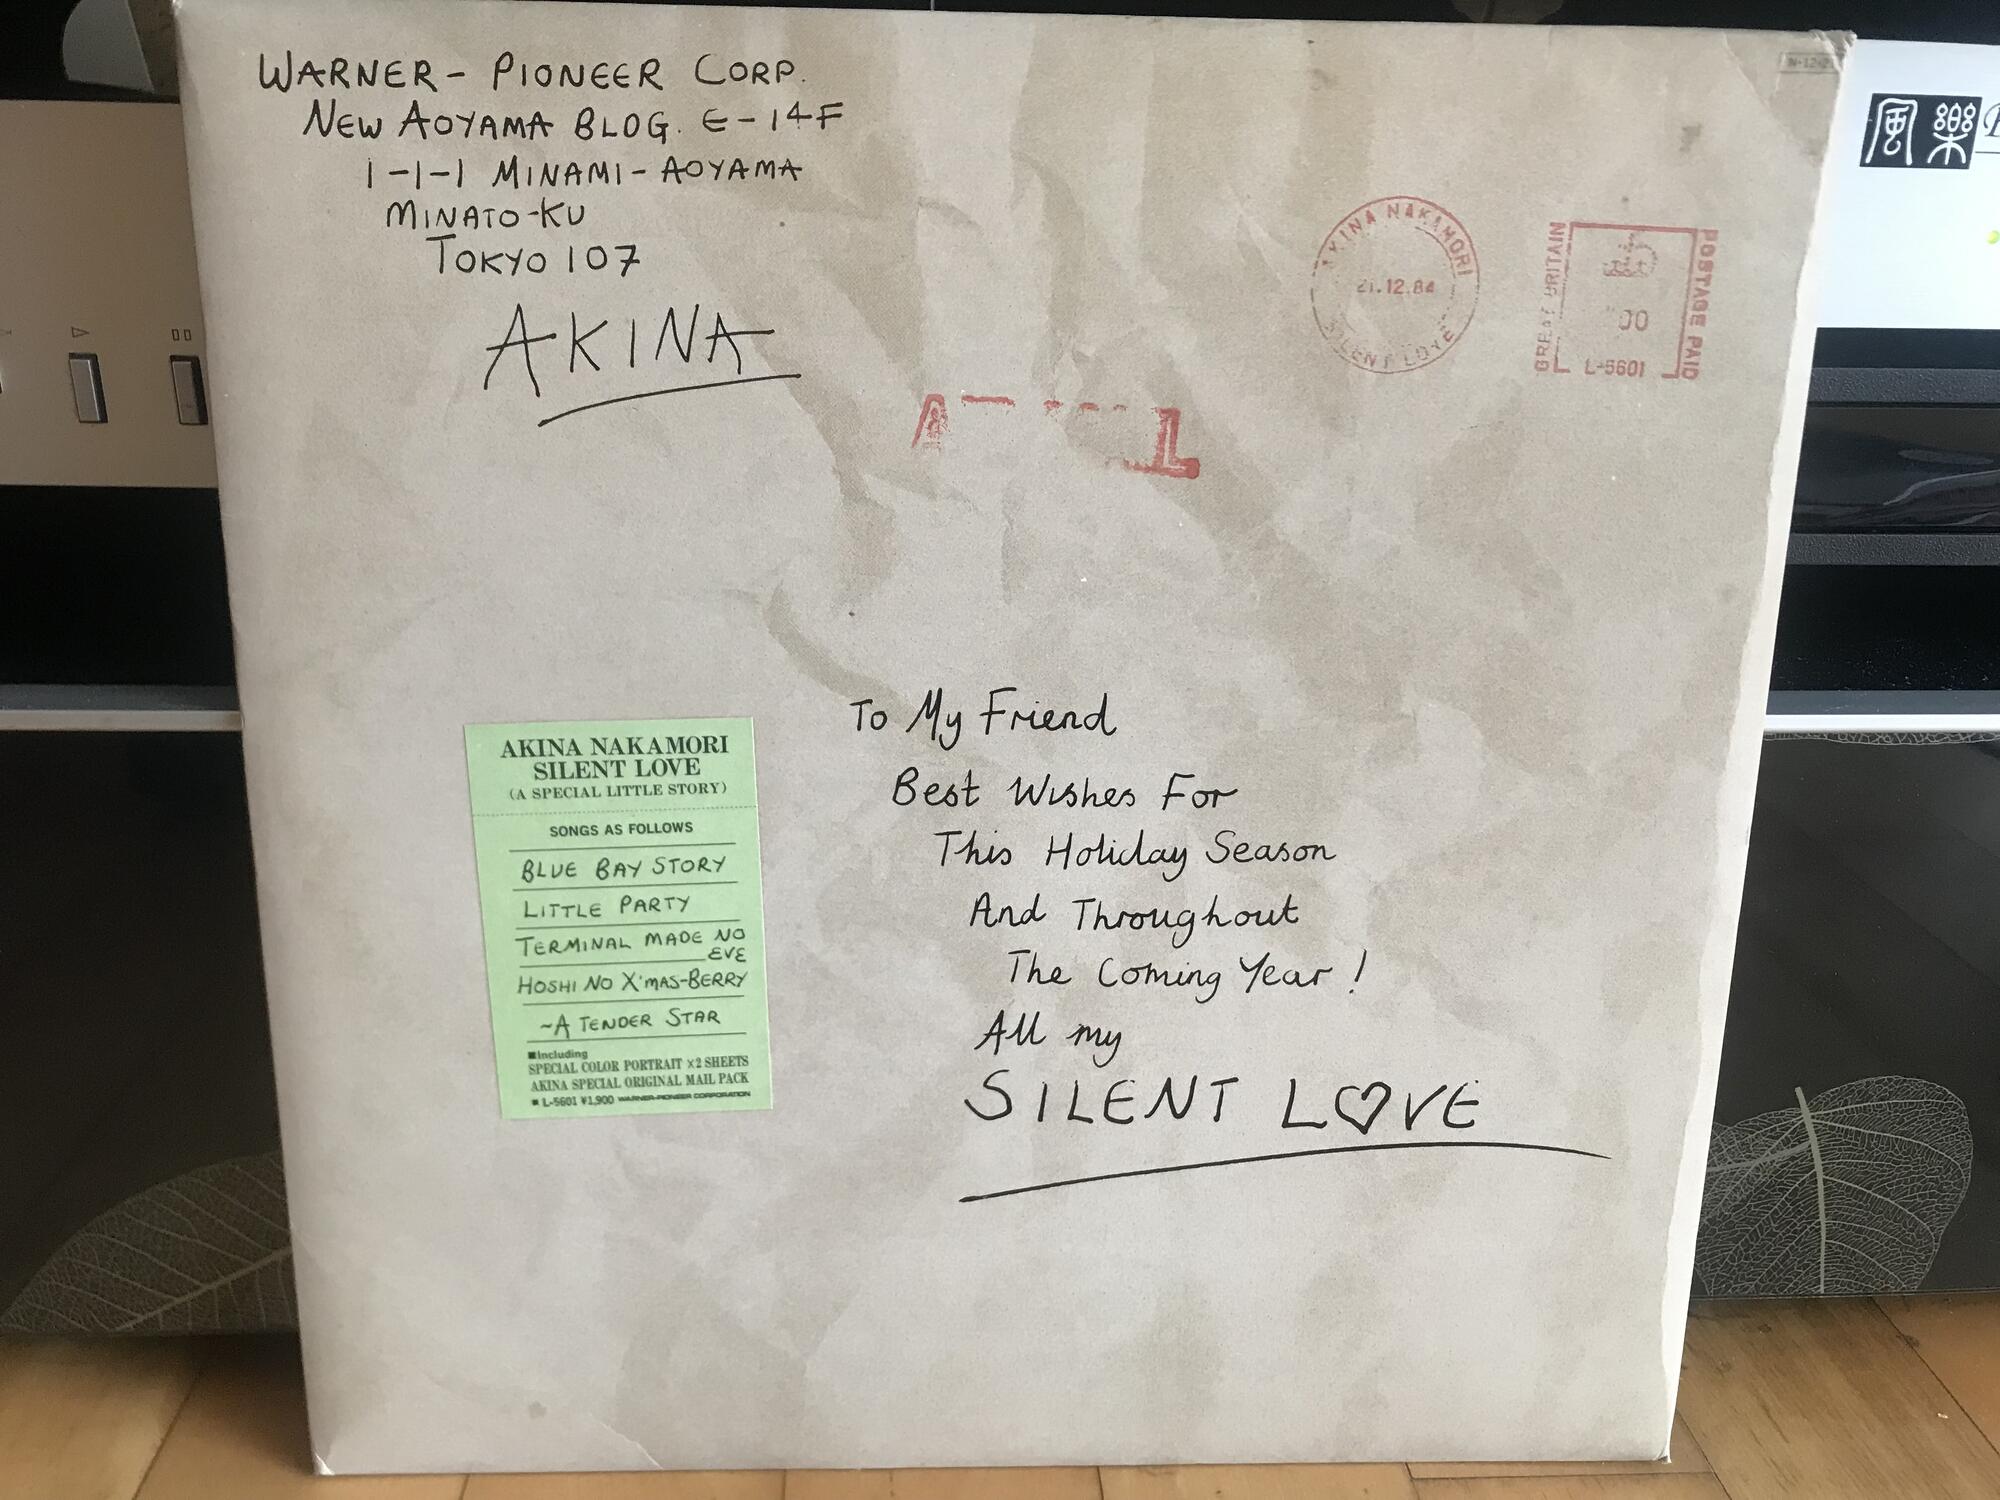 WARNER- PIONEER CORP.
NEW AOYAMA BLDG. E-14F
1-1-1 MINAMI-AOYAMA
MINATO-KU
TOKYO 107
AKINA
AKINA NAKAMORI
21.12.84
SILENT LOVE
GREAT BRITAIN
POSTAGE PAID
00
L-5601
風樂
To My Friend
Best Wishes For
This Holiday Season
And Throughout
The Coming Year !
All my
SILENT L♡VE
AKINA NAKAMORI
SILENT LOVE
(A SPECIAL LITTLE STORY)
SONGS AS FOLLOWS
BLUE BAY STORY
LITTLE PARTY
TERMINAL MADE NO
EVE
HOSHI NO X'MAS-BERRY
~A TENDER STAR
■Including
SPECIAL COLOR PORTRAIT X2 SHEETS
AKINA SPECIAL ORIGINAL MAIL PACK
■ L-5601 ¥1,900 WARNER-PIONEER CORPORATION